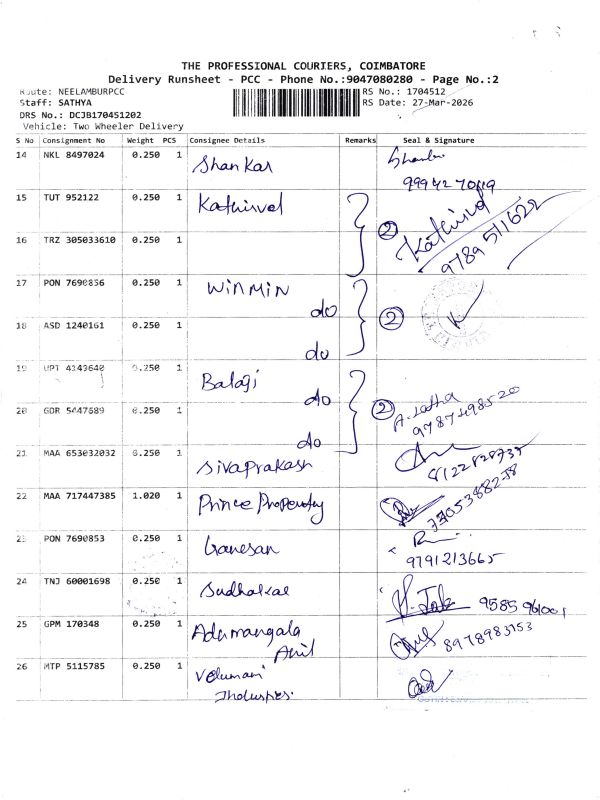 THE PROFESSIONAL COURIERS, COIMBATORE
Delivery Runsheet - PCC - Phone No.:9047080280 - Page No.:2
Route: NEELAMBURPCC
RS No.: 1704512
Staff: SATHYA
RS Date: 27-Mar-2026
DRS No.: DCJB170451202
Vehicle: Two Wheeler Delivery
S No Consignment No Weight PCS Consignee Details Remarks Seal & Signature
14 NKL 8497024 0.250 1 Shankar
15 TUT 952122 0.250 1 Kathirvel
16 TRZ 305033610 0.250 1 2 Kathirvel 9789511622
17 PON 7690856 0.250 1 WINMIN
do 2
18 ASD 1240161 0.250 1 do
19 4143640 0.250 1 Balaji
do
20 GDR 5447689 0.250 1 do 2 A. Latha
21 MAA 653032032 0.250 1 Sivaprakash
22 MAA 717447385 1.020 1 Prince Property
23 PON 7690853 0.250 1 Ganesan 9791213665
24 TNJ 60001698 0.250 1 Sudhakar
25 GPM 170348 0.250 1 Adumangala 8978983153
Anil
26 MTP 5115785 0.250 1 Velumani